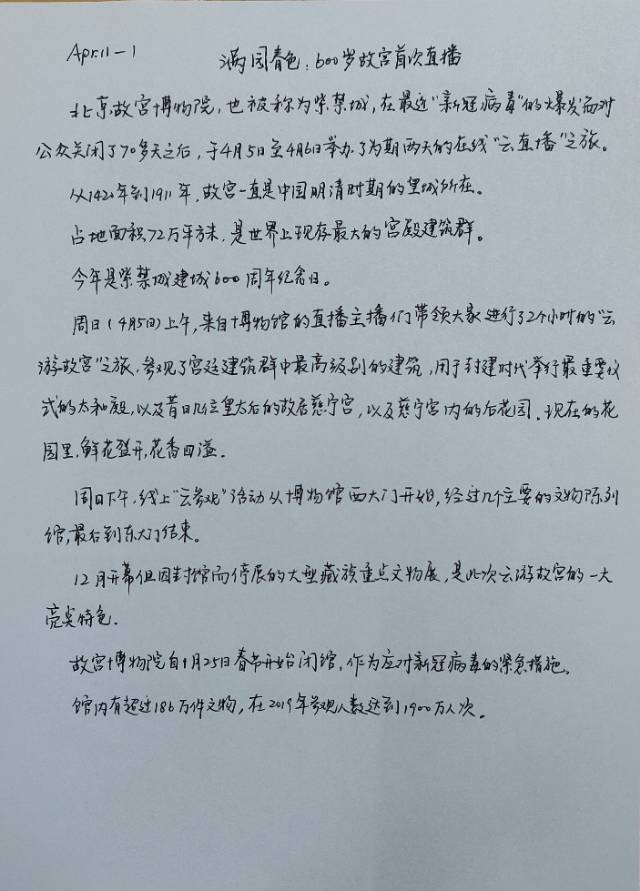 April-1
满园春色:600岁故宫首次直播
北京故宫博物院,也被称为紫禁城,在最近“新冠病毒”的爆发而对
公众关闭了70多天之后,于4月5日至4月6日举办了为期两天的在线“云直播”之旅。
从1420年到1911年,故宫一直是中国明清时期的皇城所在。
占地面积72万平方米,是世界上现存最大的宫殿建筑群。
今年是紫禁城建城600周年纪念日。
周日(4月5日)上午,来自博物馆的直播主播们带领大家进行了2个小时的“云
游故宫”之旅,参观了宫廷建筑群中最高级别的建筑,用于封建时代举行最重要仪
式的太和殿,以及昔日几位皇太后的故居慈宁宫,以及慈宁宫内的后花园.现在的花
园里,鲜花登开,花香四溢。
周日下午,线上“云参观”活动从博物馆西大门开始,经过几个主要的文物陈列
馆,最后到东大门结束。
12月开幕但因封馆而停展的大型藏族重点文物展,是此次云游故宫的一大
亮尖特色.
故宫博物院自1月25日春节开始闭馆,作为应对新冠病毒的紧急措施。
馆内有超过186万件文物,在2019年参观人数达到1900万人次。